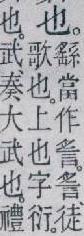 也。
繇當作䚻。䚻徒
歌也。上也字衍。
也。武奏大武也。禮